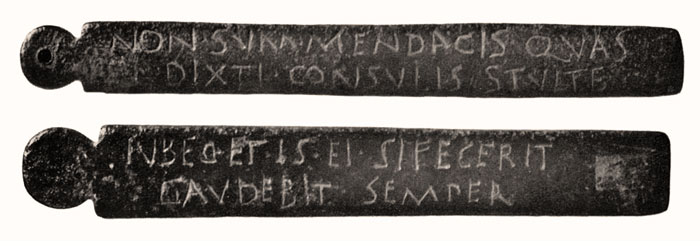 NON·SVM·MENDACIS·QVAS
DIXTI·CONSVLIS·STVLTE
IVBEO·ET·IS·EI·SI FECERIT
GAVDEBIT SEMPER